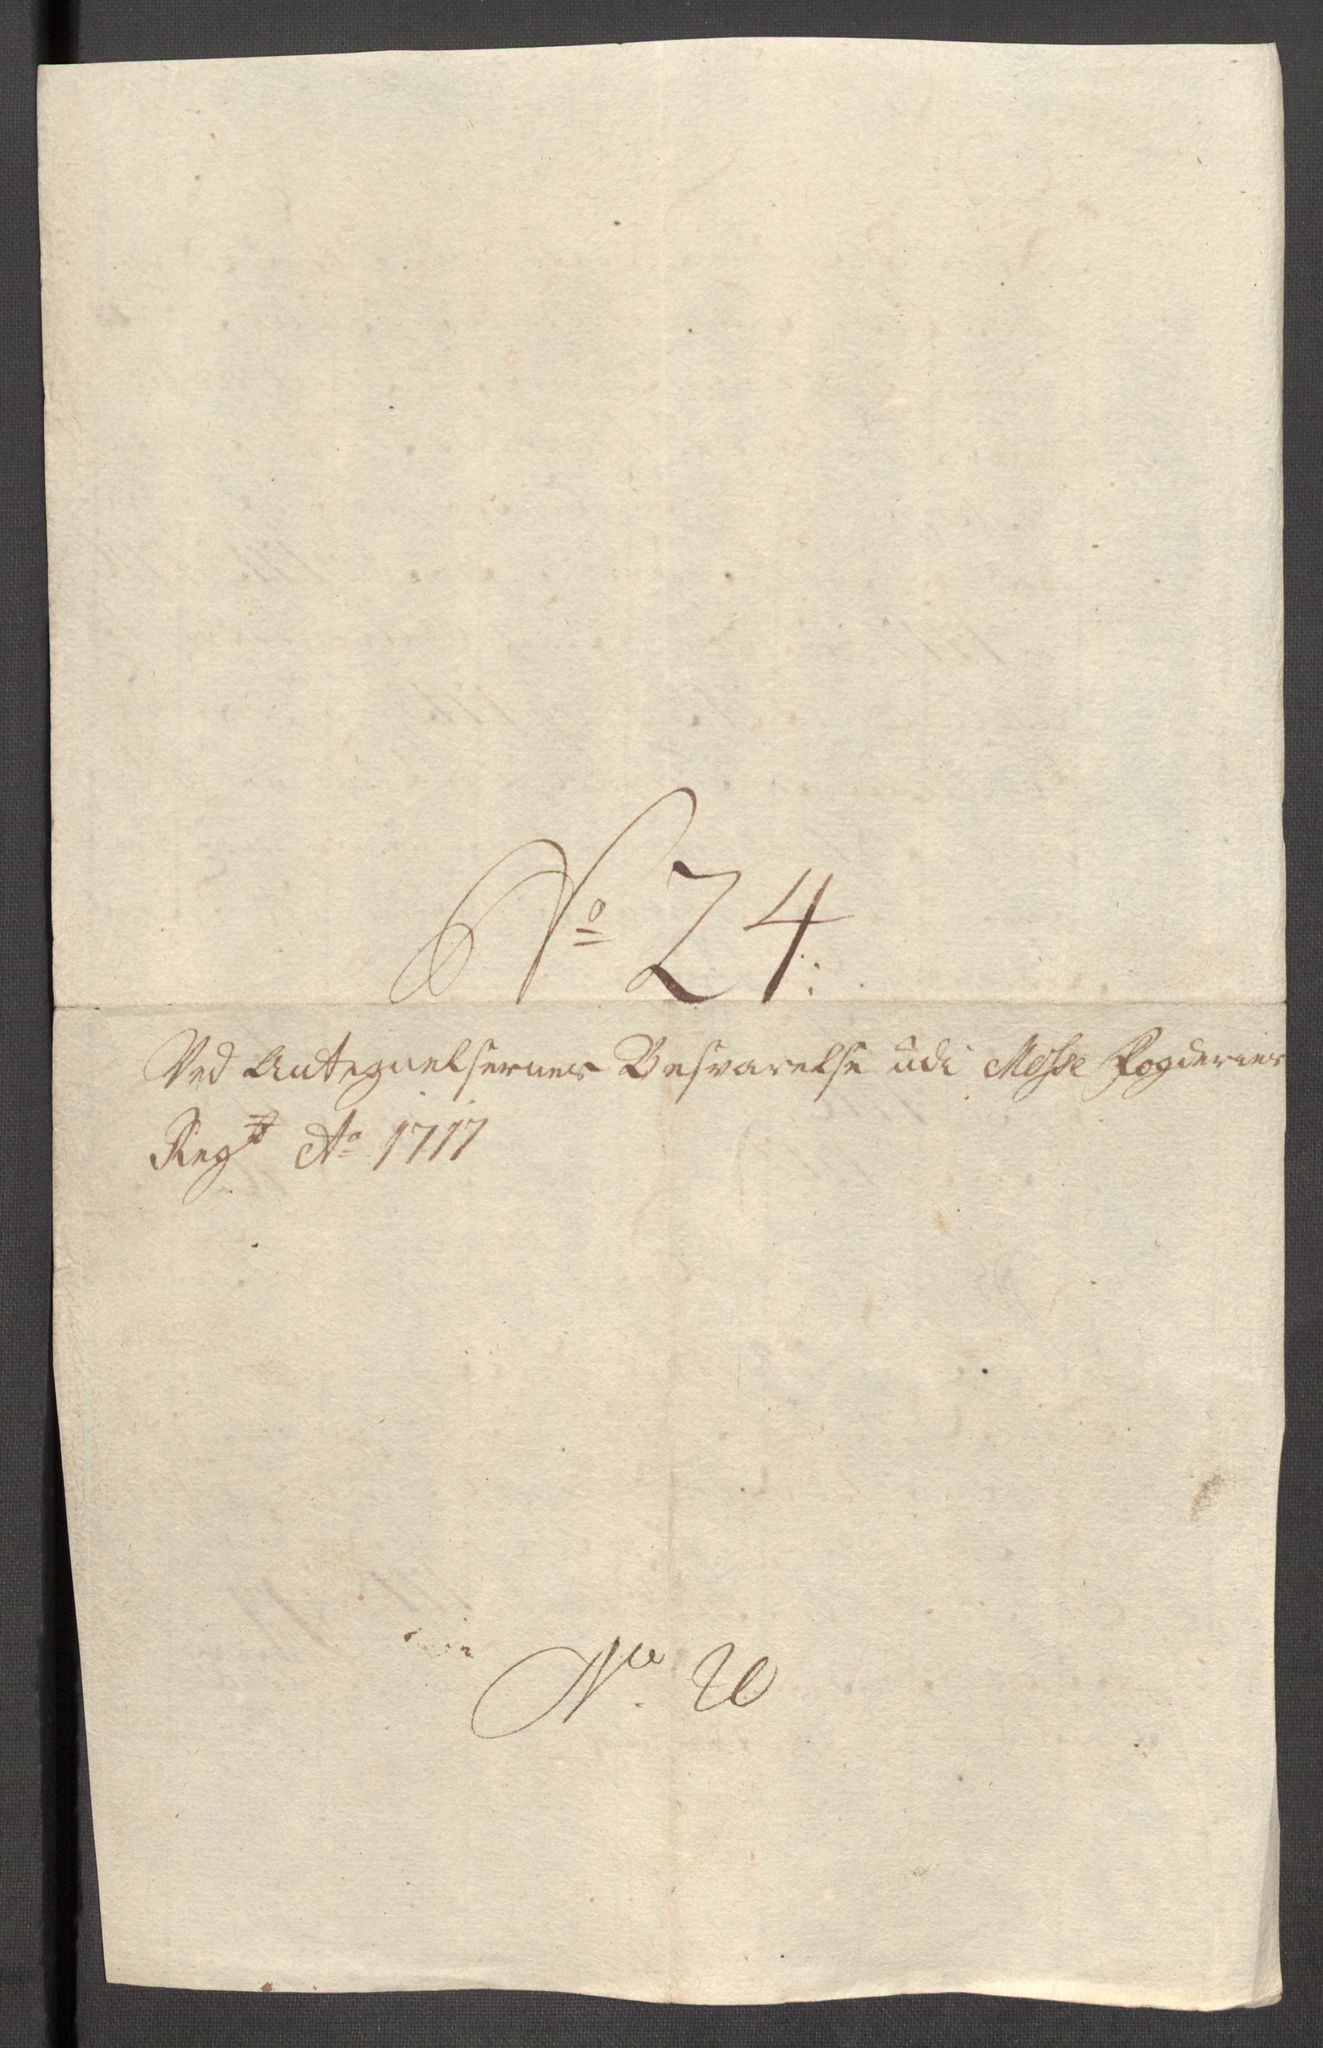 No 24.
Ved Antegnelsernes Besvarelse udi Mosse Fogderies
Regn. Ao 1717
No. 20